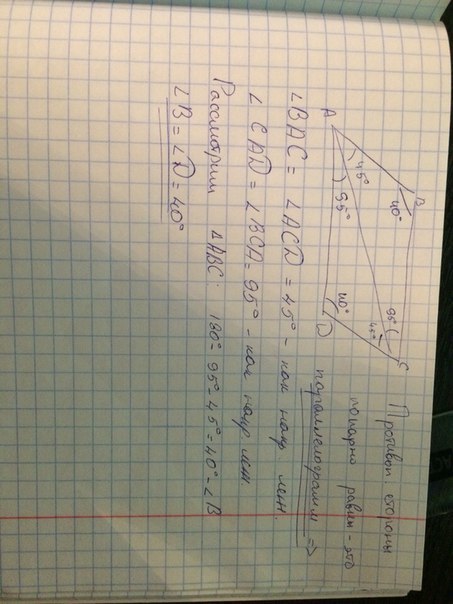 Противоп стороны
попарно равны - это
параллелограмм =>
A
B
C
D
45°
95°
40°
95°
45°
40°
∠BAC = ∠ACD = 45° - как напр леж.
∠CAD = ∠BCA = 95° - как напр леж.
Рассмотрим ΔABC: 180° - 95° - 45° = 40° - ∠B
∠B = ∠D = 40°